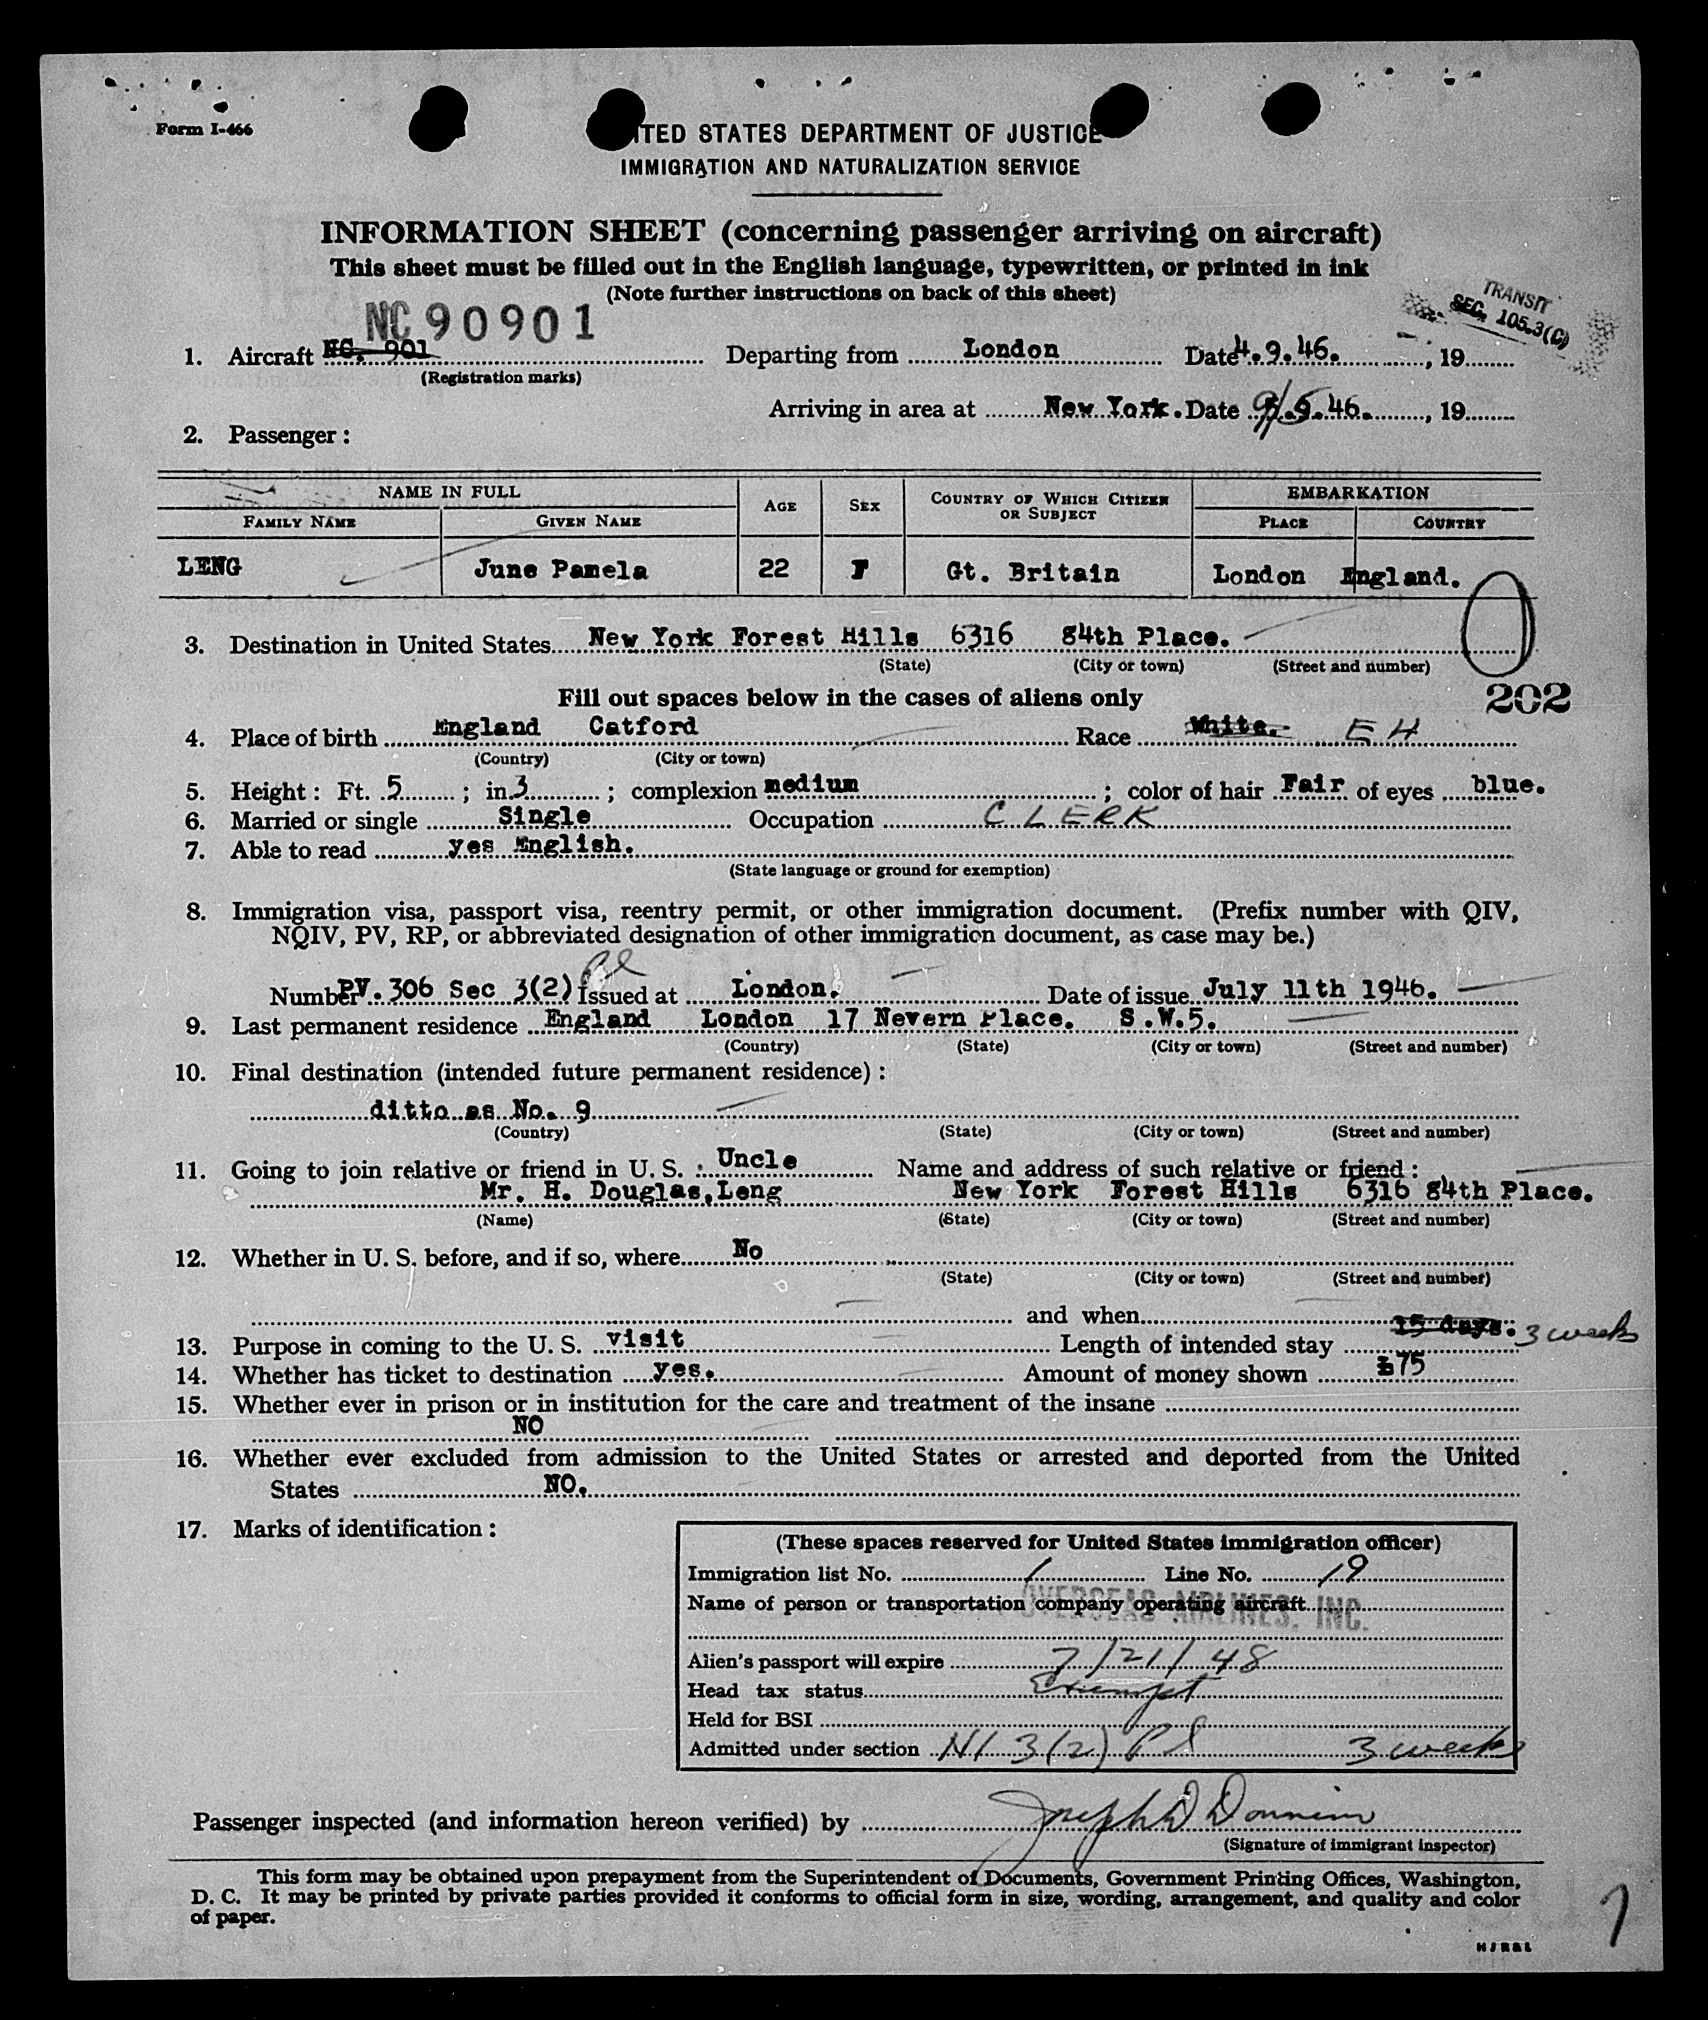 Form I-466
ITED STATES DEPARTMENT OF JUSTICE
IMMIGRATION AND NATURALIZATION SERVICE
INFORMATION SHEET (concerning passenger arriving on aircraft)
This sheet must be filled out in the English language, typewritten, or printed in ink
(Note further instructions on back of this sheet)
TRANSIT
SEC. 105.3(C)
NC 90901
1. Aircraft NC. 901 Departing from London Date 4.9.46. , 19
(Registration marks)
Arriving in area at New York. Date 9/5.9.46. , 19
2. Passenger :
NAME IN FULL AGE SEX COUNTRY OF WHICH CITIZEN OR SUBJECT EMBARKATION
FAMILY NAME GIVEN NAME PLACE COUNTRY
LENG June Pamela 22 F Gt. Britain London England.
3. Destination in United States New York Forest Hills 6316 84th Place.
(State) (City or town) (Street and number)
Fill out spaces below in the cases of aliens only 202
4. Place of birth England Catford Race White. E H
(Country) (City or town)
5. Height : Ft. 5 ; in. 3 ; complexion medium ; color of hair Fair of eyes blue.
6. Married or single Single Occupation CLERK
7. Able to read yes English.
(State language or ground for exemption)
8. Immigration visa, passport visa, reentry permit, or other immigration document. (Prefix number with QIV,
NQIV, PV, RP, or abbreviated designation of other immigration document, as case may be.)
Number PV. 306 Sec 3(2) Pl Issued at London. Date of issue July 11th 1946.
9. Last permanent residence England London 17 Nevern Place. S.W.5.
(Country) (State) (City or town) (Street and number)
10. Final destination (intended future permanent residence) :
ditto as No. 9
(Country) (State) (City or town) (Street and number)
11. Going to join relative or friend in U. S. : Uncle Name and address of such relative or friend :
Mr. H. Douglas, Leng New York Forest Hills 6316 84th Place.
(Name) (State) (City or town) (Street and number)
12. Whether in U. S. before, and if so, where No
(State) (City or town) (Street and number)
and when
13. Purpose in coming to the U. S. visit Length of intended stay 15 days. 3 weeks
14. Whether has ticket to destination yes. Amount of money shown £75
15. Whether ever in prison or in institution for the care and treatment of the insane
NO
16. Whether ever excluded from admission to the United States or arrested and deported from the United
States NO.
17. Marks of identification :
(These spaces reserved for United States immigration officer)
Immigration list No. 1 Line No. 19
Name of person or transportation company operating aircraft
OVERSEAS AIRLINES, INC.
Alien's passport will expire 7/21/48
Head tax status Exempt
Held for BSI
Admitted under section NI 3(2) Pl 3 weeks
Passenger inspected (and information hereon verified) by Joseph D
(Signature of immigrant inspector)
This form may be obtained upon prepayment from the Superintendent of Documents, Government Printing Offices, Washington,
D. C. It may be printed by private parties provided it conforms to official form in size, wording, arrangement, and quality and color
of paper.